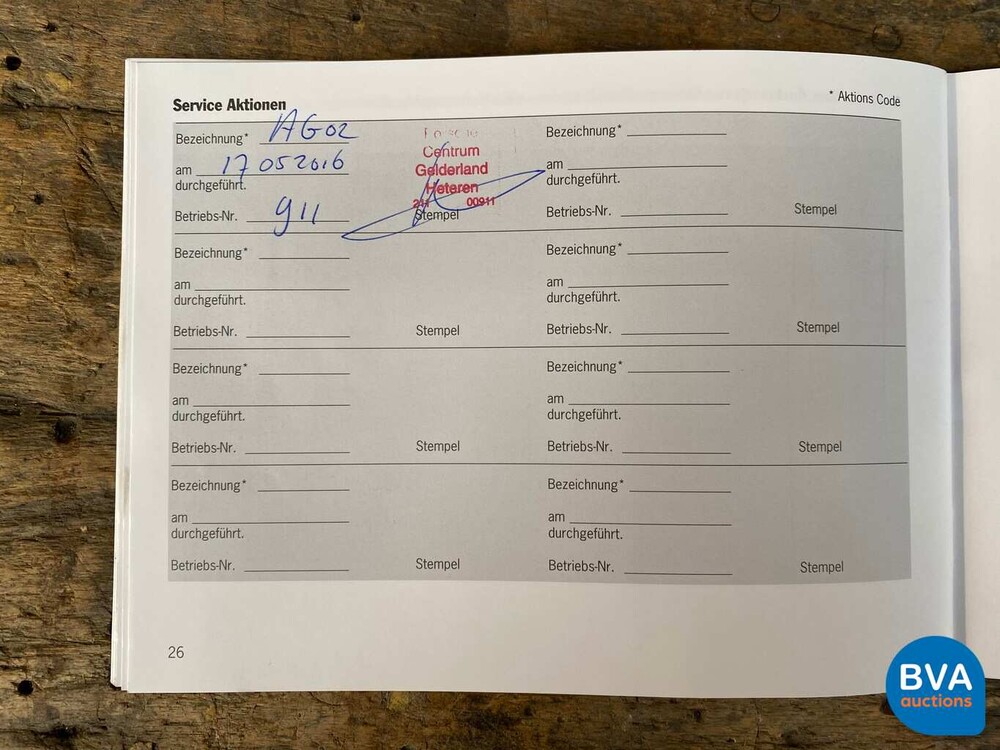 Service Aktionen
* Aktions Code
Bezeichnung* AG02
am 17 05 2016
durchgeführt.
Betriebs-Nr. 911
Centrum
Gelderland
Heteren
211 00911
Stempel
Bezeichnung*
am
durchgeführt.
Betriebs-Nr. Stempel
Bezeichnung*
am
durchgeführt.
Betriebs-Nr. Stempel
Bezeichnung*
am
durchgeführt.
Betriebs-Nr. Stempel
Bezeichnung*
am
durchgeführt.
Betriebs-Nr. Stempel
Bezeichnung*
am
durchgeführt.
Betriebs-Nr. Stempel
Bezeichnung*
am
durchgeführt.
Betriebs-Nr. Stempel
Bezeichnung*
am
durchgeführt.
Betriebs-Nr. Stempel
26
BVA
auctions